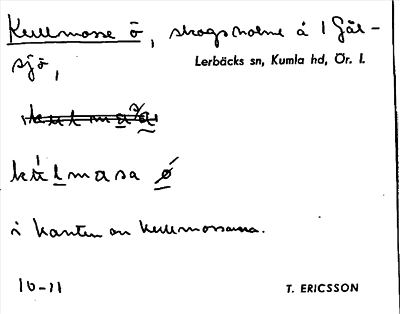 Kullmosse ö, skogsholme å l Gål-
sjö,
Lerbäcks sn, Kumla hd, Ör. l.
kúlmasa ø
i kanten av Kullmossarna.
10-11
T. ERICSSON